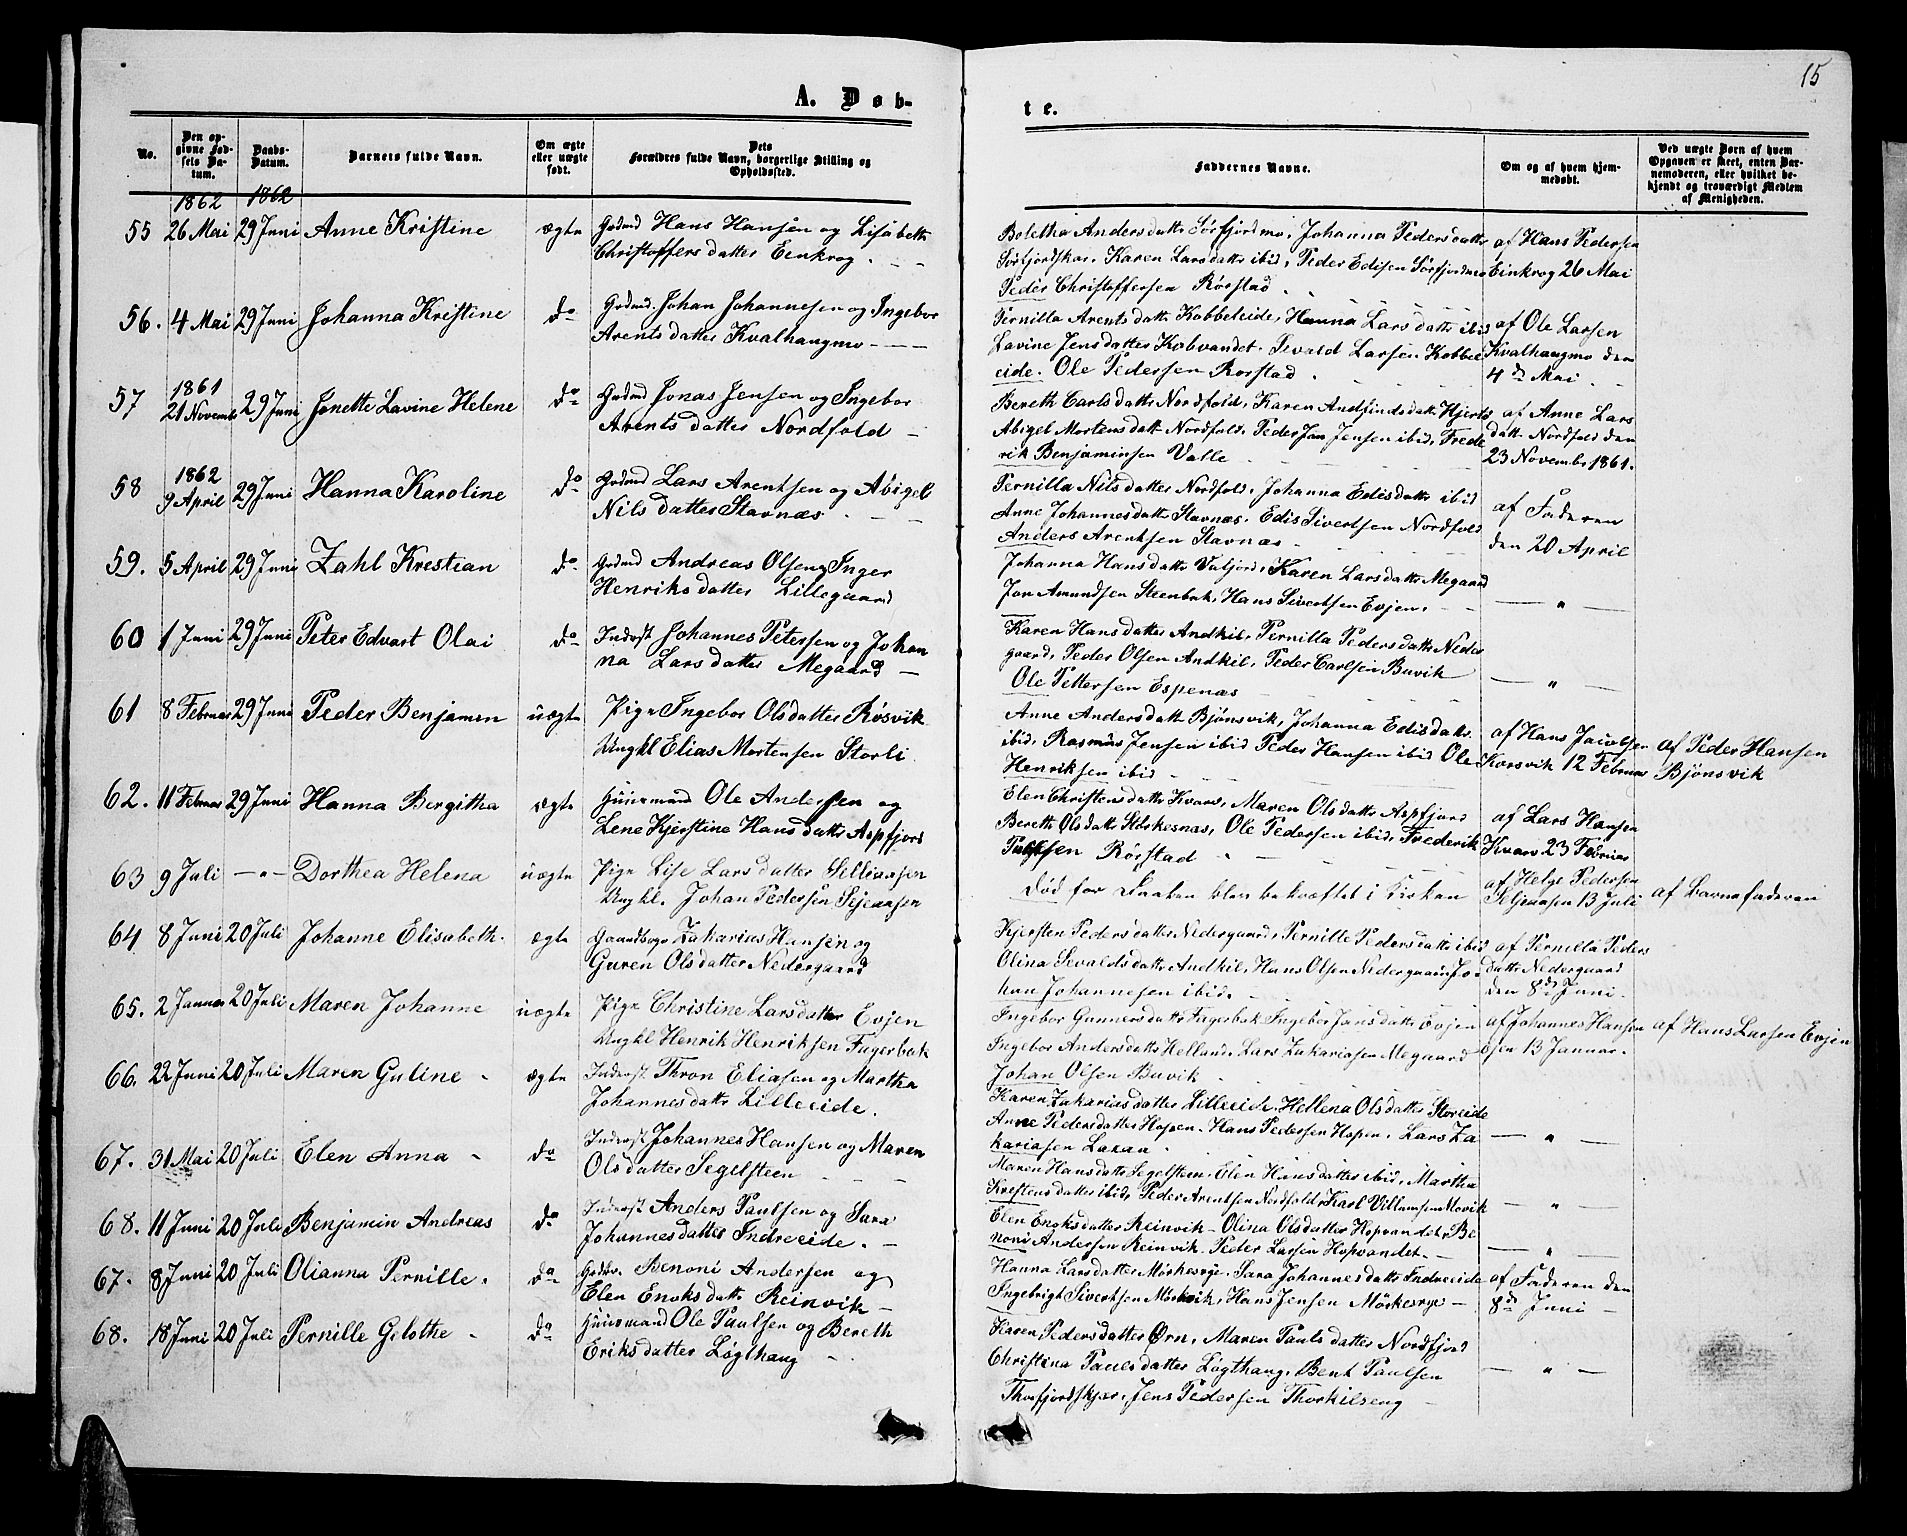 15
A. Døb-
te.
No.
Den op-
givne Fød-
sels Da-
tum.
Daabs-
Datum.
Barnets fulde Navn.
Om ægte
eller uægte
født.
Dets
Forældres fulde Navn, borgerlige Stilling og
Opholdssted.
Faddernes Navne.
Om og af hvem hjem-
medøbt.
Ved uægte Børn af hvem
Opgaven er skeet, enten Bar-
nemoderen, eller hvilket be-
kjendt og troværdigt Medlem
af Menigheden.
1862 1862
55 26 Mai 29 Juni Anne Kristine ægte Gdmd Hans Hansen og Lisabeth
Christoffersdatter Eenkrog.
Boletha Andersdattr Sørfjordmo, Johanna Pedersdatter
Sørfjordskar, Karen Larsdattr ibid, Peder Edisen Sørfjordmo
Peder Christoffersen Rørstad
af Hans Pedersen
Einkrog 26 Mai
56. 4 Mai 29 Juni Johanna Kristine do Gdmd. Johan Johannesen og Ingebor
Arentsdatter Kvalhaugmo
Pernilla Arentsdattr Kobbeleide, Hanna Larsdattr ibid
Lavine Jensdatter Kobvandet. Sevald Larsen Kobbel
eide. Ole Pedersen Rørstad
af Ole Larsen
Kvalhaugmo den
4de Mai
57 1861
21 Novembr 29 Juni Jonette Lavine Helene do Gdmd Jonas Jensen og Ingebor
Arentsdatter Nordfold
Bereth Carlsdattr Nordfold, Karen Andfindsdattr Hjertø
Abigel Mortensdattr Nordfold, Peder Jan Jensen ibid, Frede
rik Benjaminsen Valle
af Anne Lars
dattr Nordfold den
23 Novembr 1861.
58 1862
9 April 29 Juni Hanna Karoline do Gdmd Lars Arentsen og Abigel
Nilsdatter Stavnæs
Pernilla Nilsdatter Nordfold, Johanna Edisdattr ibid
Anne Johannesdattr Stavnæs, Edis Sivertsen Nordfold
Anders Arentsen Stavnæs
af Faderen
den 20 April
59. 5 April 29 Juni Zahl Krestian do Gdmd Andreas Olsen og Inger
Henriksdatter Lillegaard
Johanna Hansdattr Vatjord, Karen Larsdattr Megaard
Jon Amundsen Steenbak, Hans Sivertsen Evjen,
— „ —
60 1 Juni 29 Juni Peter Edvart Olai do Inderst Johannes Petersen og Johan
na Larsdatter Megaard
Karen Hansdatter Andkil, Pernilla Pedersdattr Neder
gaard, Peder Olsen Andkil, Peder Carlsen Buvik
Ole Pettersen Espenæs
— „ —
61 8 Februar 29 Juni Peder Benjamin uægte Pige Ingebor Olsdatter Røsvik
Ungkl Elias Mortensen Storli
Anne Andersdattr Bjønsvik, Johanna Edisdattr
ibid, Rasmus Jensen ibid Peder Hansen ibid Ole
Henriksen ibid
af Hans Jacobsen
Korsvik 12 Februar
af Peder Hansen
Bjønsvik
62. 11 Februar 29 Juni Hanna Bergitha ægte Huusmand Ole Andersen og
Lene Kjerstine Hansdattr Aspfjord
Elen Christensdattr Kvarv, Maren Olsdattr Aspfjord
Bereth Olsdattr Elskesnæs, Ole Pedersen ibid, Frederik
Rørstad
af Lars Hansen
Kvarv 23 Februar
63 9 Juli — „ — Dorthea Helena uægte Pige Lise Larsdatter
Ungkl. Johan Pedersen
Død før Daaben blev bekræftet i Kirken
af Helge Pedersen
13 Juli
af Barnefaderen
64 8 Juni 20 Juli Johanne Elisabeth. ægte Gaardbrgr Zakarias Hansen og
Guren Olsdatter Nedergaard
Kjersten Pedersdattr Nedergaard, Pernille Pedersdattr ibid
Olina Sevaldsdattr Andkil, Hans Olsen Nedergaard, Jo
han Johannesen ibid.
af Pernilla Peders
dattr Nedergaard
den 8de Juni
65. 2 Januar 20 Juli Maren Johanne uægte Pige Christine Larsdatter Evjen
Ungkl Henrik Henriksen Fagerbak
Ingebor Gunnersdattr Fagerbak, Ingebor Jansdattr Evjen
Ingebor Andersdattr Helland, Lars Zakariasen Megaard
Johan Olsen Buvik
af Johannes Hansen
Evjen 13 Januar.
af Hans Larsen Evjen
66. 22 Juni 20 Juli Maren Guline ægte Inderst Thron Eliasen og Martha
Johannesdattr Lilleeide.
Karen Zakariasdatter Lilleeide, Hellena Olsdatter Storeide
Anne Pedersdatter Hopen. Hans Pedersen Hopen, Lars Za
kariasen Laxaa
67. 31 Mai 20 Juli Elen Anna do Inderst Johannes Hansen og Maren
Olsdatter Segelsteen
Maren Hansdattr Segelsteen, Elen Hansdatter ibid, Martha
Krestensdatter ibid, Peder Arentsen Nordfold, Karl Villumsen Movik
— „ —
68. 11 Juni 20 Juli Benjamin Andreas do Inderst Anders Paulsen og Sara
Johannesdatter Indreeide.
Elen Enoksdatter Reinvik, Olina Olsdatter Hopvandet, Be
noni Andersen Reinvik, Peder Larsen Hopvandet
— „ —
67. 8 Juni 20 Juli Olianna Pernille. do Gdbr. Benoni Andersen og
Elen Enoksdattr Reinvik
Hanna Larsdatter Mørkesrye. Sara Johannesdattr Indreeide
Ingebrigt Sivertsen Mørsvik, Hans Jensen Mørkesrye
af Faderen den
8de Juni
68. 18 Juni 20 Juli Pernille Gelothe do Huusmand Ole Paulsen og Bereth
Eriksdatter Løgthaug
Karen Pedersdatter Ørn, Maren Paulsdatter Nordfjord
Christina Paulsdatter Løgthaug, Bent Paulsen
Thorfjordskjær, Jens Pedersen Thorkilseng
— „ —